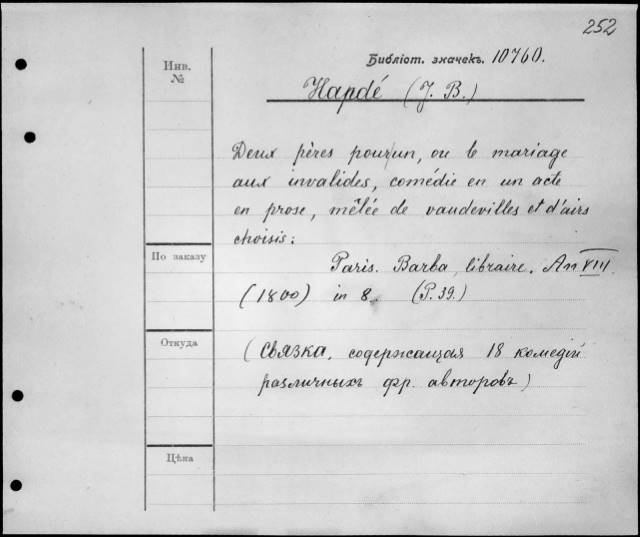 252
Инв. №
Библіот. значекъ. 10760.
Hapdé (J. B.)
Deux pères pour un, ou le mariage
aux invalides, comédie en un acte
en prose, mêlée de vaudevilles et d'airs
choisis:
По заказу
Paris. Barba, libraire. An VIII
(1800) in 8. (P. 39.)
Откуда
(Связка, содержащая 18 комедій
различныхъ фр. авторовъ)
Цѣна